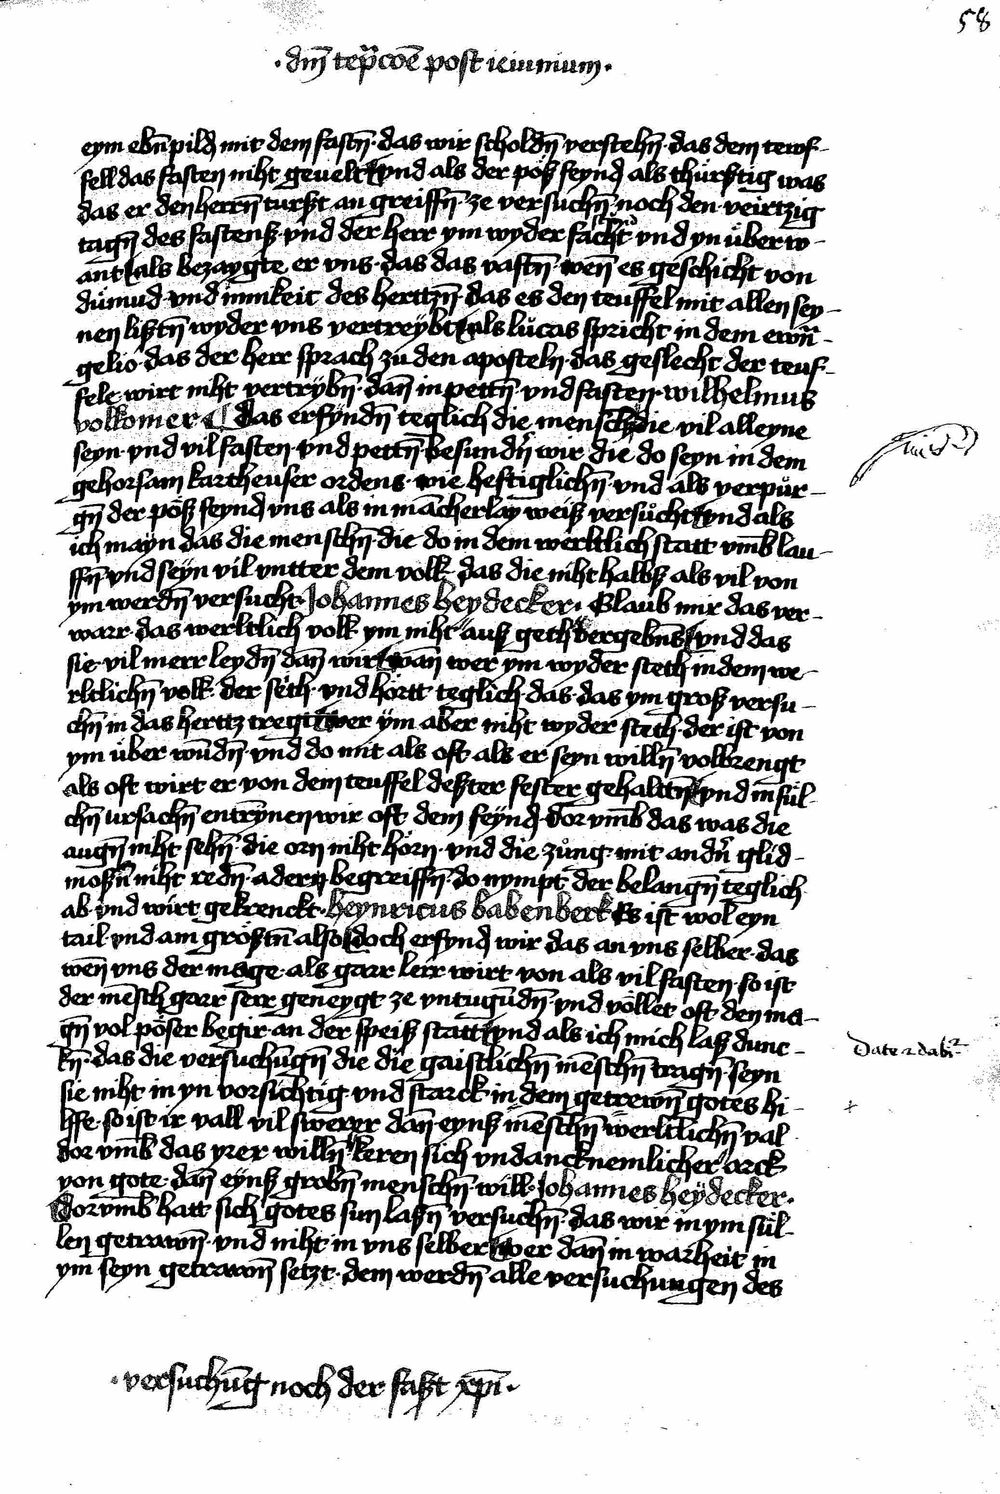 58
·dm̄ tēptac̄oē post ieiunium·
eym ebn̄pild mit dem fastn̄·das wir scholdn̄ verstehn̄·das dem tewf-
fell das fasten niht gevelt vnd als der pöß feynd als thürstig was
das er den herrn̄ turßt an greiffn̄·ze versuchn̄·noch den·veirtzig
tagn̄ des fastenß·vnd der herr ym wyder facht vnd yn über w-
ant als bezaygte er vns·das das vastn̄·wen̄ es geschicht von
dümud·vnd innikeit des herttzn̄·das es den teuffel mit allen sey-
nen listn̄ wyder vns vertreÿbt als lucas spricht in dem ewn̄-
gelio·das der herr sprach zu den aposteln·das geslecht der teuf-
fele·wirt niht vertrÿbn̄·dan̄ in pettn̄·vnd fasten·wilhelmus
volkomer das erfyndn̄ teglich die mensch die vil alleyne
seyn·vnd vil fasten·vnd pettn̄·besundn̄ wir die do seyn in dem
gehorsam kartheuser ordens·wie heftiglichn̄·vnd als verpür-
gn̄ der pöß feynd vns als in mācherlay weiß versücht vnd als
ich mayn das die menschn̄·die do in dem werltlich statt vmb lau-
ffn̄·vnd seÿn vil vntter dem volk das die niht halbß als vil von
ym werdn̄ versucht·Johannes heydecker·Glaub mir das ver-
warr·das werltlich volk ym niht auß geth vergebn̄s vnd das
sie·vil merr leydn̄ dan̄ wir wan̄ wer ym wyder steth in dem we-
rltlichn̄ volk·der seth·vnd hörtt teglich·das·das ym groß versu-
chn̄ in das herttz tregt wer ÿm aber niht wyder steth·der ist von
ym über wūdn̄·vnd do mit als oft als er seyn willn̄ volbrengt
als oft wirt er von dem teuffel dester fester gehalttn̄ vnd in sül-
chn̄ ursachn̄ entrȳnen wir oft dem feÿnd·dor vmb das was die
augn̄ niht sehn̄·die orn niht hörn·vnd die züng·mit andn̄ glid-
moßn̄ niht redn̄·adern begreiffn̄·do nympt der belangn̄ teglich
ab·vnd wirt gekrenckt·heynricus babenberk Es ist wol eyn
tail·vnd am größtn̄ also doch erfynd wir das an vns selber·das
wen̄ vns der mage·als garr lerr wirt·von als vil fasten·so ist
der mēsch garr serr geneygt ze vntugūdn̄·vnd völlet oft den ma-
gn̄ vol pöser begir·an der speiß statt vnd als ich mich laß dunc-
kn̄·das die versuchūgn̄ die die gaistlichn̄ mēschn̄ tragn̄·seyn
sie niht in yn vorsichtig·vnd starck·in dem getrewn̄ gotes hi-
lffe·so ist ir vall vil swerer dan̄ eynß mēschn̄ werltlichn̄ val
dor vmb das yrer willn̄ keren sich vndancknemlicher arck
von gote·dan̄ eynß grobn̄ menschn̄·will·Johannes heÿdecker·
Dorvmb hatt sich gotes sun laßn̄ versuchn̄·das wir in ym sül-
len getrawn̄·vnd niht in vns selber wer dan̄ in warheit in
ym seyn getrawn̄ setzt·dem werdn̄ alle versuchungen des
Date 2 dabr
·versuchūg noch der faßt xp̄i·